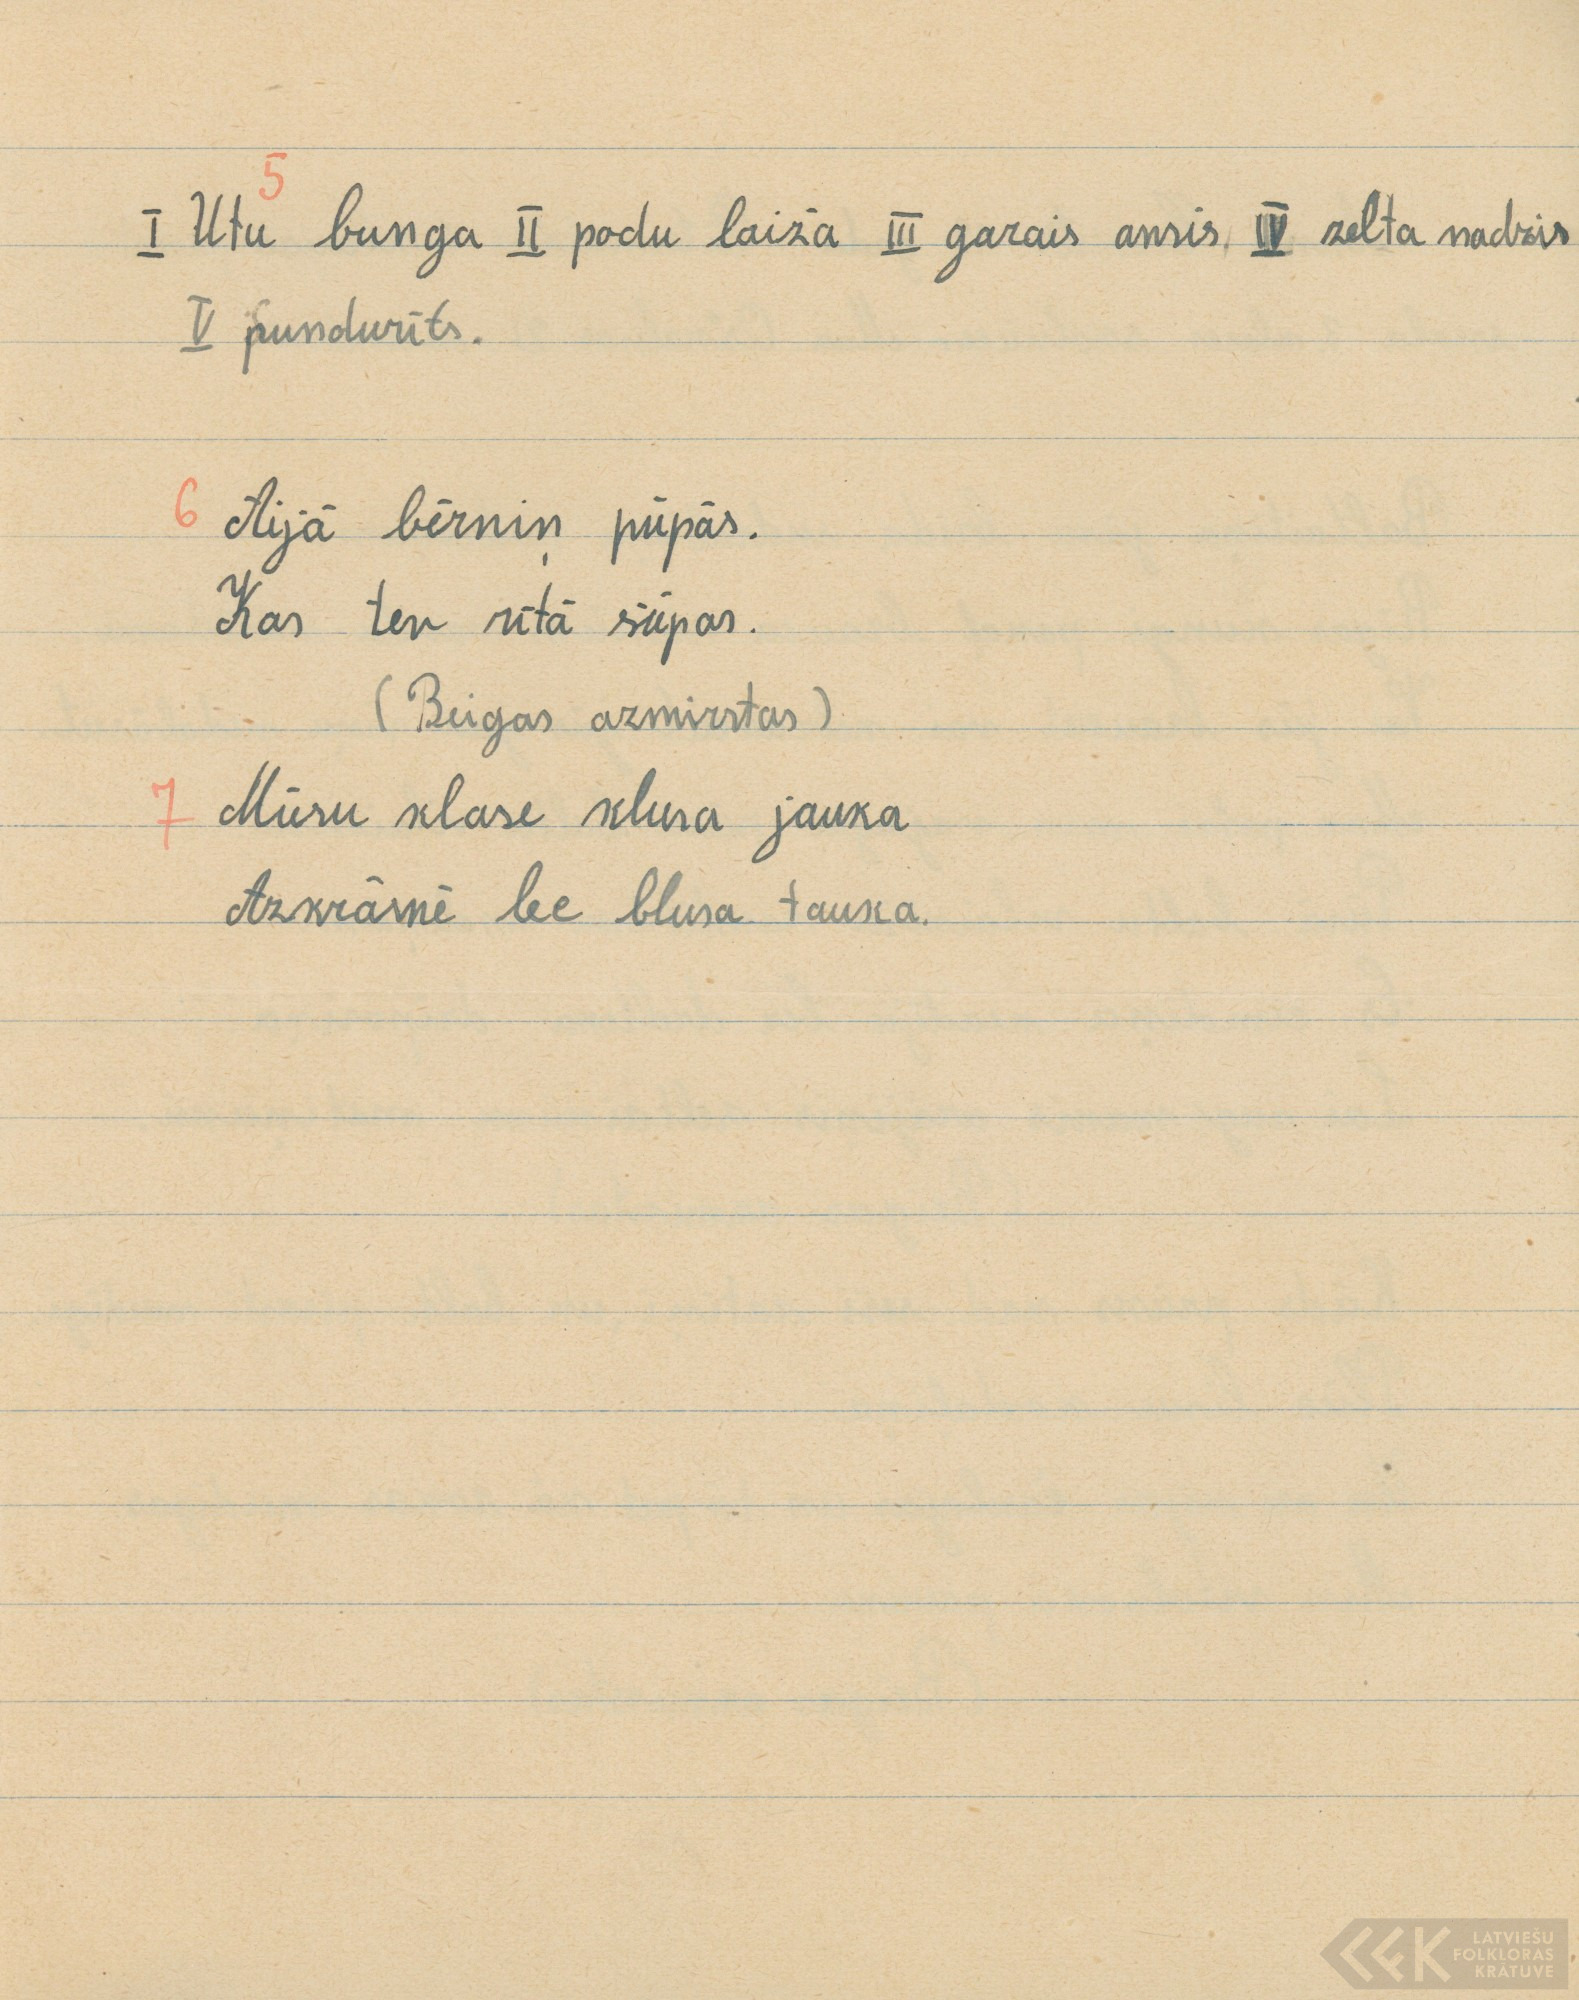 5
I Utu bunga II podu laiža III garais ansis IV zelta nadzis
V pundurīts.
6 Aijā bērniņ pūpās.
Kas tev rītā šūpas.
(Beigas azmirstas)
7 Mūsu klase klusa jauka
Azkrāsnē lec blusa tauka.
LATVIEŠU
FOLKLORAS
KRĀTUVE